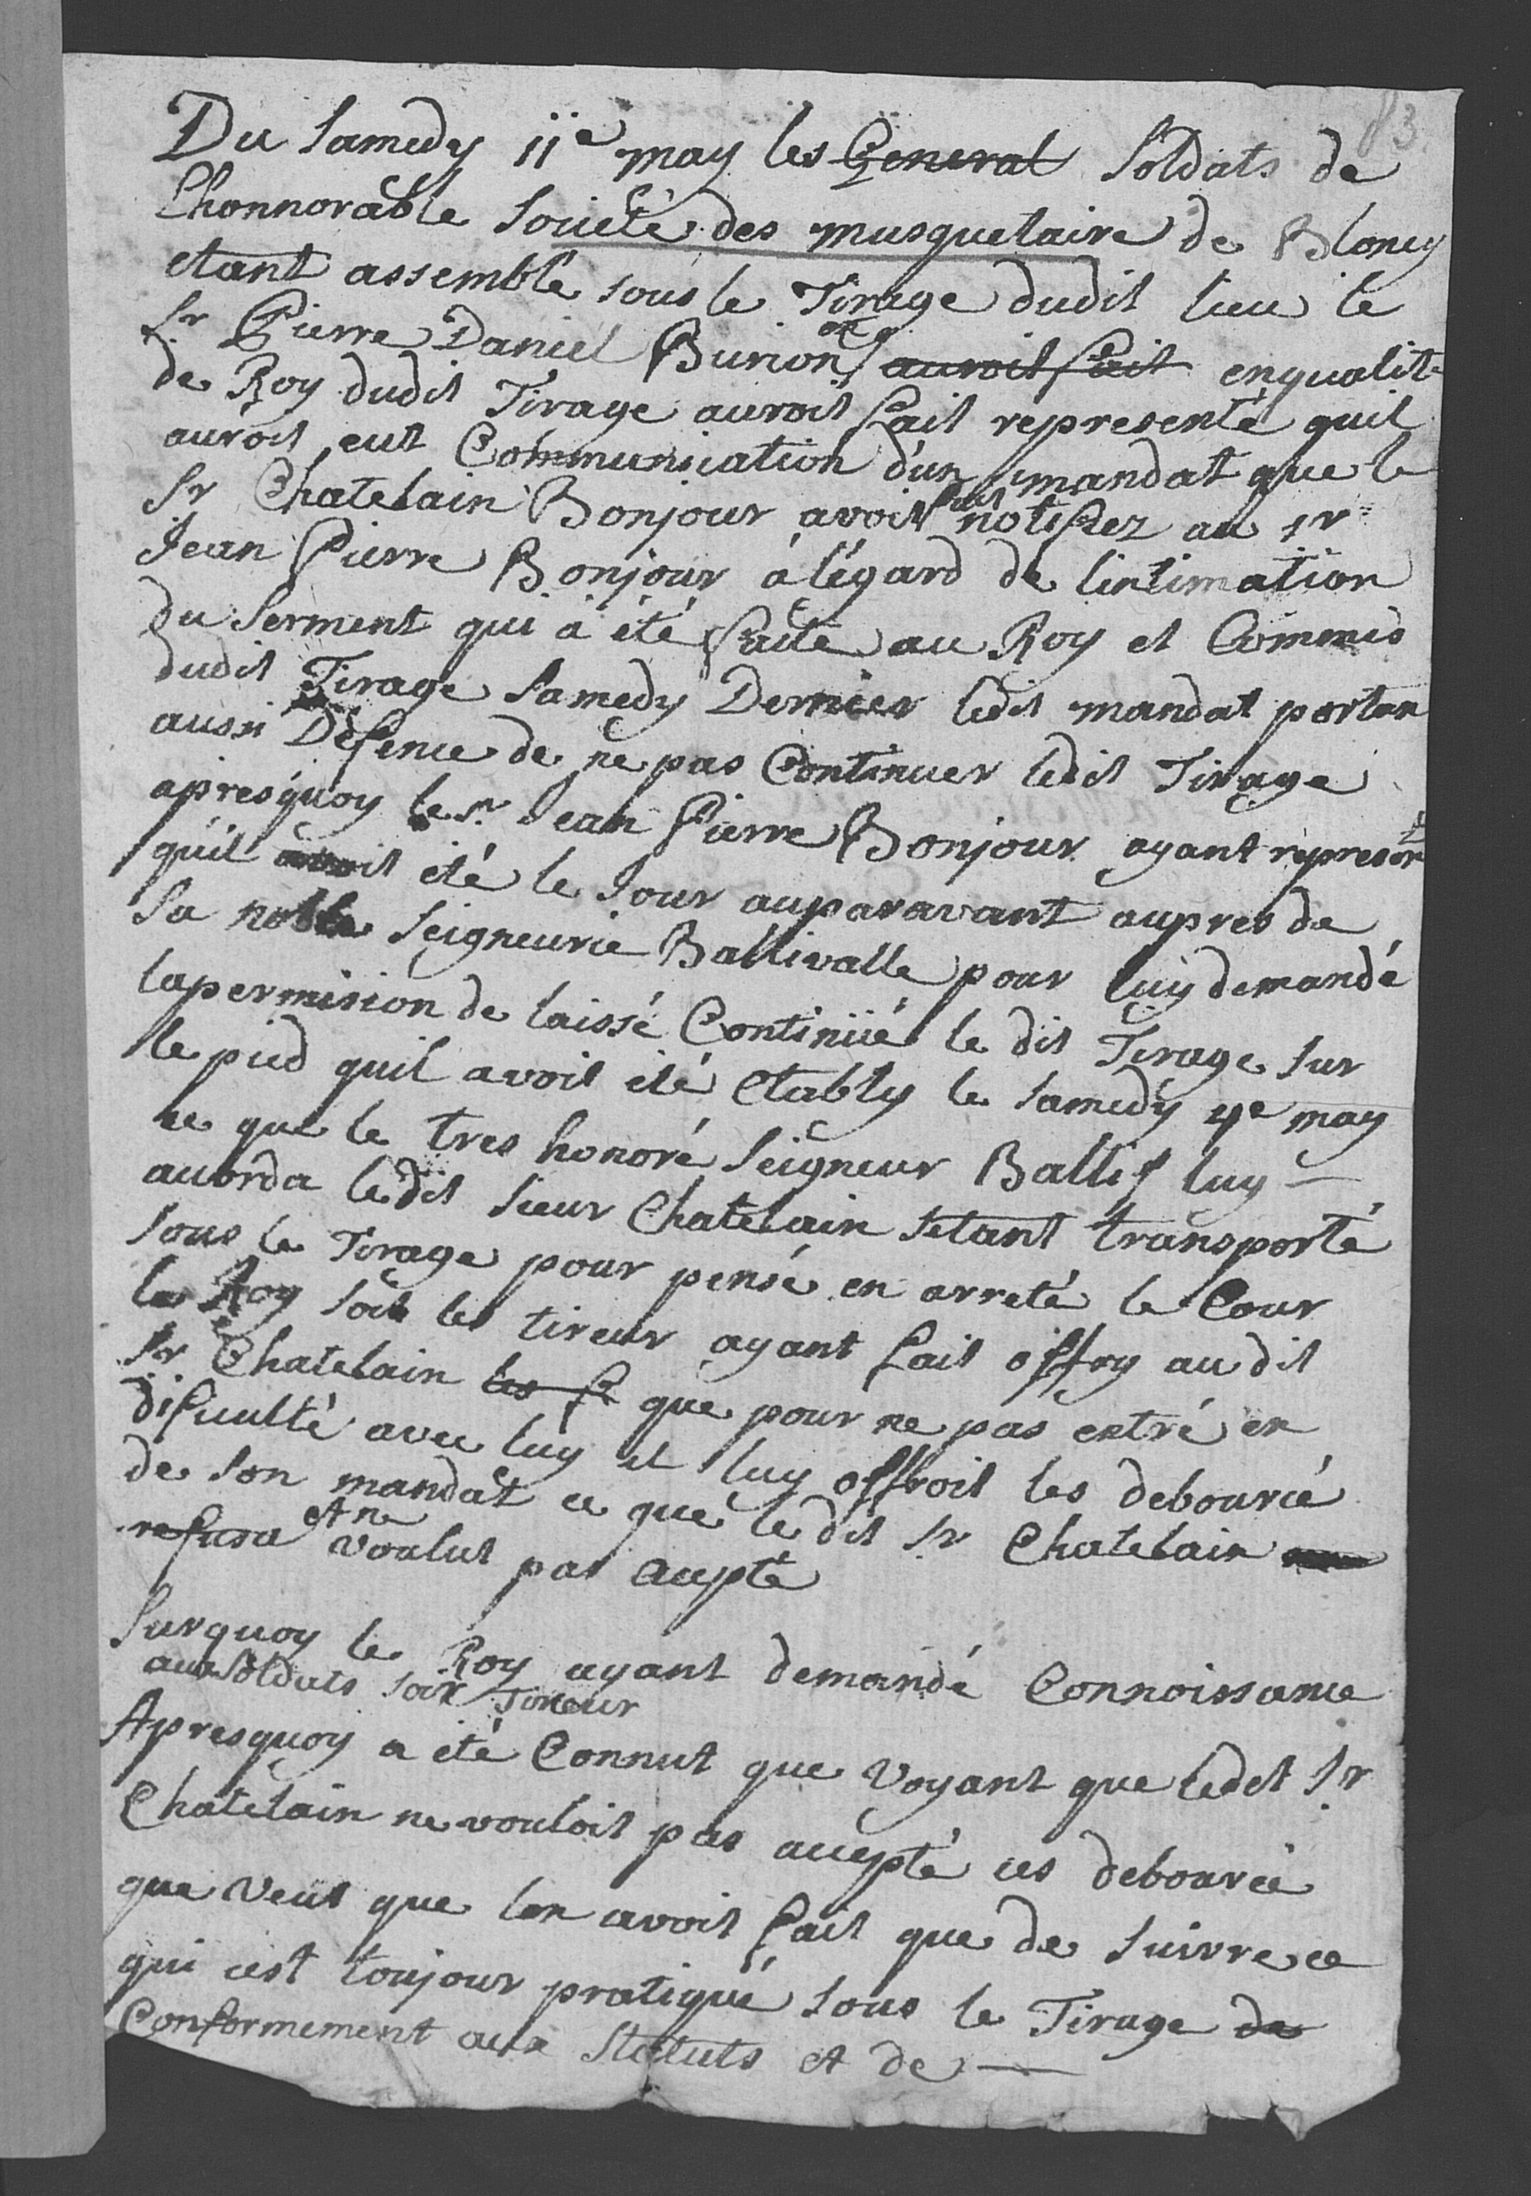 83
Du Samedy 11e may les General Soldats de
Lhonnorable Societé des musquetaire de Bloney
etant assemblé sous le Tirage dudit lieu le
Sr Pierre Daniel Burion auroit fait enqualite
de Roy dudit Tirage auroit fait representé quil
auroit eut Communication d'un mandat que le
Sr Chatelain Bonjour avoit fait notifiez au sr
Jean Pierre Bonjour à légard de lintimation
du Serment qui à été faite au Roy et Commis
dudit Tirage Samedy Dernier ledit mandat portan
aussi Défence de ne pas Continuer ledit Tirage
apresquoy le Sr Jean Pierre Bonjour ayant represent
qu'il avoit été le Jour auparavant aupres de
Sa noble Seigneurie Ballivalle pour luy demandé
lapermision de laissé Continüé le dit Tirage sur
le pied quil avoit été Etably le Samedy 4e may
ce que le tres honoré Seigneur Ballif luy —
acorda ledit Sieur Chatelain setant transporté
sous le Tirage pour pensé en arreté le Cour
le Roy soit les tireur ayant fait offry au dit
Sr Chatelain les f que pour ne pas entré en
dificulté avec luy il luy offroit les debourcé
de son mandat ce que le dit Sr Chatelain
refusa et ne voulut pas acepté
Surquoy le Roy ayant demandé Connoissance
aux Soldats soit Tireur
Apresquoy a été Connut que Voyant que ledit Sr
Chatelain ne vouloit pas accepté ces debourcé
que Veut que lon avoit fait que de suivre ce
qui cest toujour pratiqué sous le Tirage de
Conformement aux Statuts et de —